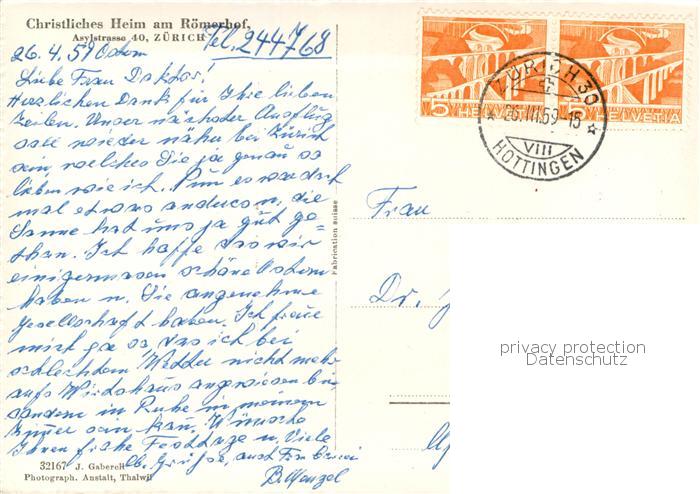 Christliches Heim am Römerhof,
Asylstrasse 40, ZÜRICH Tel. 244768
26.4.59 Ostern
Liebe Frau Doktor!
Herzlichen Dank für Ihre lieben
Zeilen. Unser nächster Ausflug
soll wieder näher bei Zürich
sein, welches Sie ja genau so
lieben wie ich. Nun es war doch
mal etwas anderes u. die
Sonne hat uns ja gut ge-
than. Ich hoffe das wir
einigermasen schöne Ostern
haben u. Sie angenehme
Gesellschaft haben. Ich freue
mich ja so das ich bei
schlechtem Wetter nicht mehr
aufs Wirtshaus angewiesen bin
sondern in Ruhe in meinem
Zimmer sein kan. Wünsche
Ihnen frohe Festtage u. Viele
lb. Grüsse, auch Frau
B. Menzel
32167 J. Gaberell
Photograph. Anstalt, Thalwil
Fabrication suisse
5 HELVETIA 5 HELVETIA
ZÜRICH 30
26.III.59-15
VIII
HOTTINGEN
Frau
Dr.
privacy protection
Datenschutz